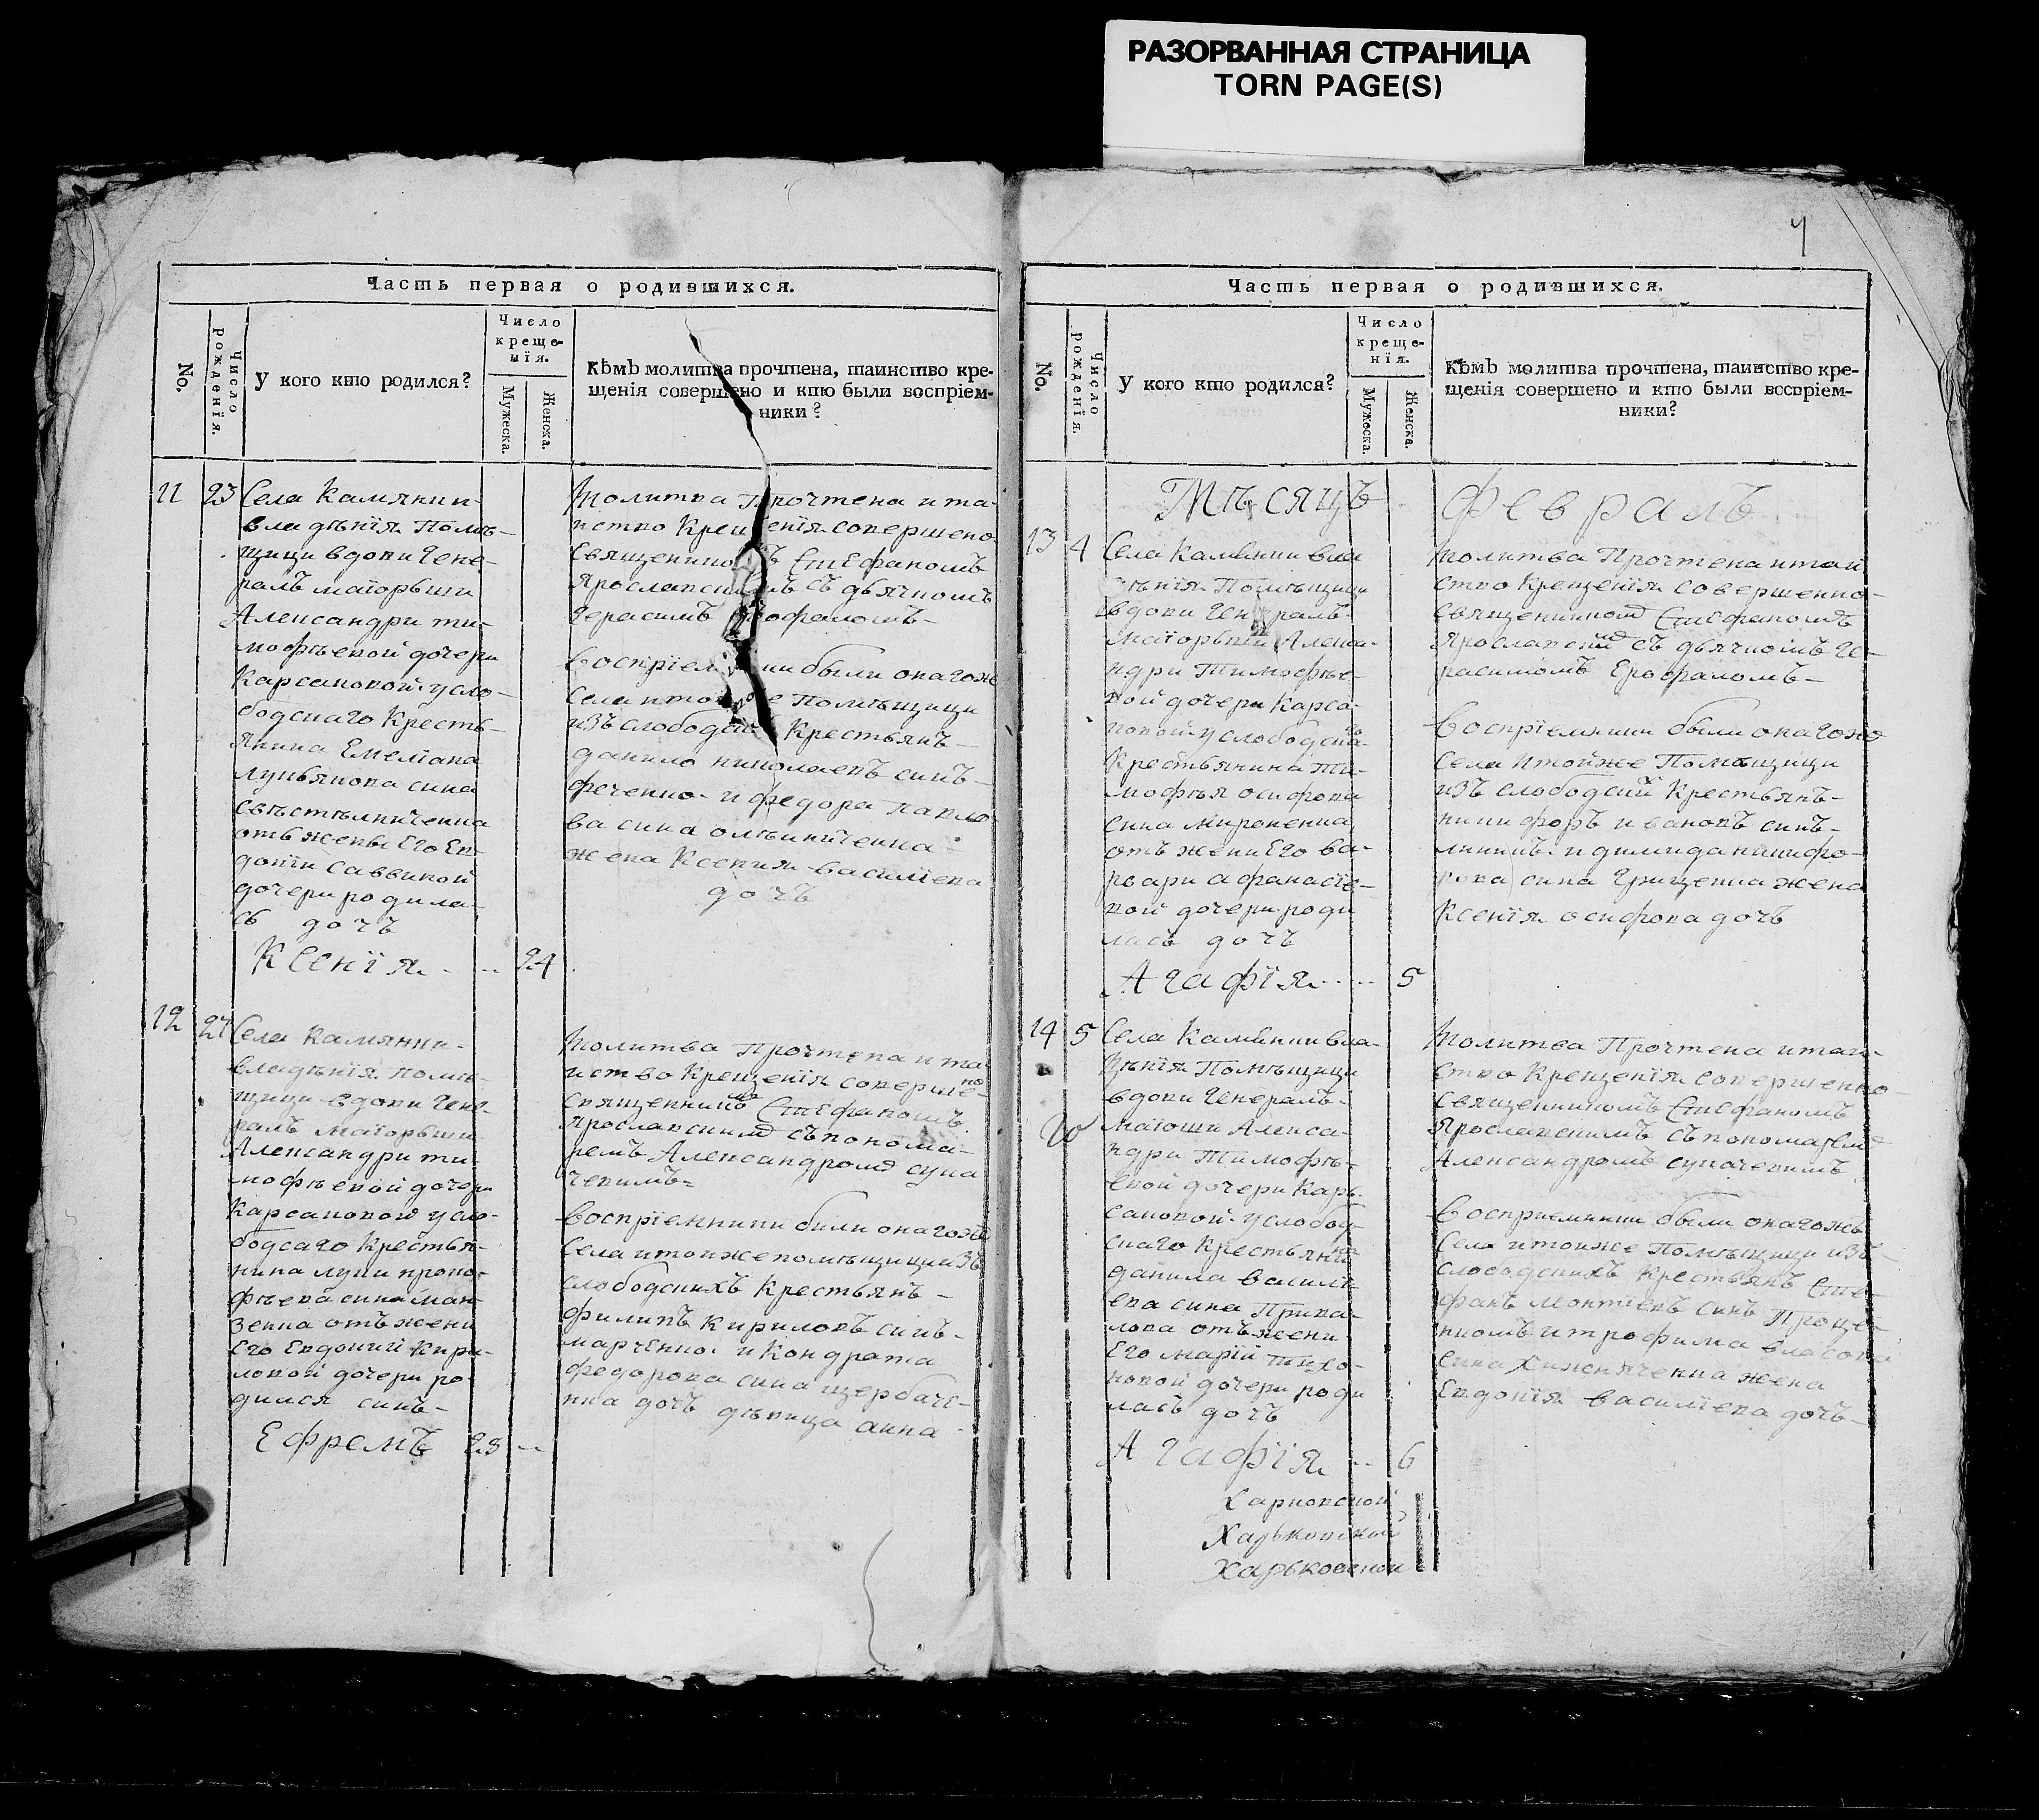 РАЗОРВАННАЯ СТРАНИЦА
TORN PAGE(S)
Часть первая о родившихся.
No.
Число рожденїя.
У кого кто родился?
Число креще-нїя.
Мужеска.
Женска.
Кѣмъ молитва прочтена, таинство кре-
щенїя совершено и кто были воспрїем-
ники?
11 23 Села Камянки
владѣнїя Помѣ-
щици вдови Гене-
ралъ маїорьши
Александри ти-
мофѣевой дочери
Карсановой усло-
бодскаго Кресть-
янина Емелїана
Лукьянова сина
отъ жены Его Ев-
докїи Саввиной
дочери родила-
сь дочъ
Ксенїя 24
Молитва Прочтена и та-
инство Крещенїя совершено
Священникомъ Стефаномъ
Ярославскимъ съ дьячкомъ
Герасимъ
Воспрїемники были онагожъ
Села и тойже Помѣщици
изъ слободскихъ Крестьянъ
данило николаевъ синъ
и федора павло
ва сина
жена Ксения василїева
дочъ
12 27 Села Камянки
владѣнїя поме-
щици вдови Гене-
ралъ маїорьши
Александри ти-
мофѣевой дочери
Карсановой усло-
бодсаго Крестья-
нина луки проко-
фѣева сина ман
зенка отъ жени
его Евдокиїи Кири-
ловой дочери ро-
дился синъ
Ефремъ 28
Молитва Прочтена и та
инство Крещенїя соверше-но
священникомъ Стефаномъ
Ярославскимъ съ понома-
ремъ Александромъ сука
чевимъ
Воспрїемники били онагожъ
Села и тоижепомѣщици изъ
слободскихъ Крестьянъ
филипъ Кириловъ синъ
марченко и Кондрата
федорова сина щербаче-
нка дочъ дѣвица анна
Часть первая о родившихся.
No.
Число рожденїя.
У кого кто родился?
Число креще-нїя.
Мужеска.
Женска.
Кѣмъ молитва прочтена, таинство кре-
щенїя совершено и кто были воспрїем-
ники?
Мѣсяцъ Февраль
13 4 Села Камянки вла
дѣнїя Помѣщици
вдови Генералъ
Маїорьши Алекса-
ндри Тимофѣе-
вой дочери Карса-
новой услободска-го
Крестьянина Ти-
мофѣя осифова
сина мироненка
отъ жени Его ва-
рвари афанасїе-
вой дочери роди
лась дочъ
Агафїя 5
Молитва Прочтена и таи
ство Крещенїя совершенно
Священникомъ Стефаномъ
Ярославскимъ съ дьячкомъ Ге-
расимомъ
Воспрїемники были онагожъ
Села и тойже Помѣщици
изъ слободскихъ Крестьянъ
никифоръ ивановъ синъ
рова сина Грищенка жена
Ксенїя осифова дочъ
14 5 Села Камянки вла-
дѣнїя Помѣщици
вдови Генералъ
Маїоши Алекса-
ндри Тимофѣ-
евой дочери Карь-
сановой услобод-
скаго Крестьянина
данила василе-
ева сина Прива-
лова отъ жени
Его марїй тихо-
новой дочери роди
лась дочъ
Агафїя 6
Молитва Прочтена и таи-
ство Крещенїя совершенно
священникомъ Стефаномъ
Ярославскимъ съ пономаремъ
Александромъ сукачевимъ
Восприемники были онагожъ
Села и тоиже Помѣщици изъ
слободскихъ Крестьянъ Сте-
фанъ синъ
и трофима власова
сина жена
Евдокїя василїева дочъ
Харковской
Харьковской
Харьковской